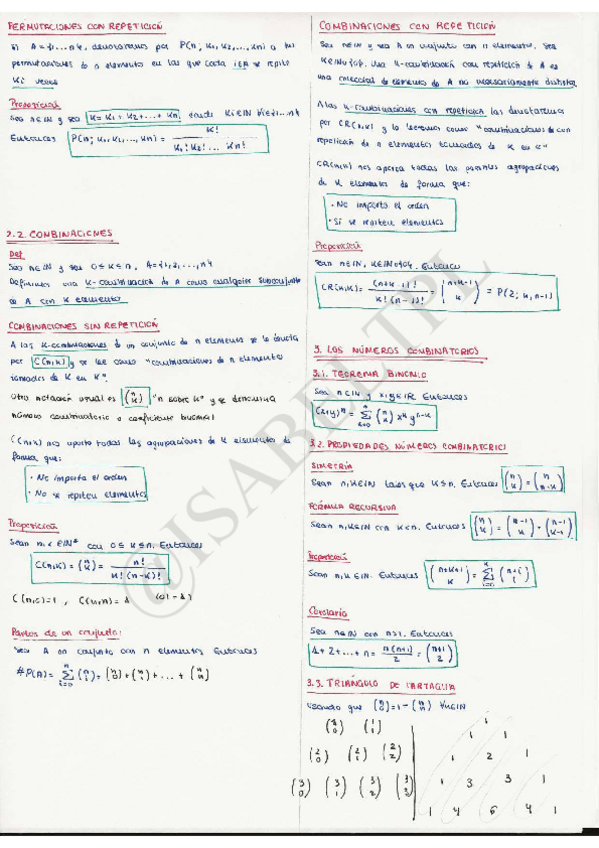 PERMUTACIONES CON REPETICIÓN
Si A={1,...,n}, denotaremos por P(n; k1, k2, ..., kn) a las
permutaciones de n elementos en las que cada i∈A se repite
ki veces
Proposición
Sea n∈IN y sea k = k1 + k2 + ... + kn, donde ki∈IN ∀i=1...n
Entonces P(n; k1, k2, ..., kn) = k! / (k1! k2! ... kn!)
2.2. COMBINACIONES
Def
Sea n∈IN y sea 0≤k≤n, A={1,2,...,n}
Definimos una k-combinación de A como cualquier subconjunto
de A con k elementos
COMBINACIONES SIN REPETICIÓN
A las k-combinaciones de un conjunto de n elementos se les denota
por C(n,k) y se lee como "combinaciones de n elementos
tomados de k en k".
Otra notación usual es (n k) "n sobre k" y se denomina
número combinatorio o coeficiente binomial
C(n,k) nos aporta todas las agrupaciones de k elementos de
forma que:
· No importa el orden
· No se repiten elementos
Proposición
Sean n, k∈IN* con 0≤k≤n. Entonces
C(n,k) = (n k) = n! / (k! (n-k)!)
C(n,0)=1, C(n,n)=1 (0!=1)
Partes de un conjunto:
Sea A un conjunto con n elementos. Entonces
#P(A) = Σ i=0 n (n i) = (n 0) + (n 1) + ... + (n n)
COMBINACIONES CON REPETICIÓN
Sea n∈IN y sea A un conjunto con n elementos. Sea
k∈IN∪{0}. Una k-combinación con repetición de A es
una colección de elementos de A no necesariamente distintos
A las k-combinaciones con repetición las denotaremos
por CR(n,k) y lo leeremos como "combinaciones con
repetición de n elementos tomados de k en k"
CR(n,k) nos aporta todas las posibles agrupaciones
de k elementos de forma que:
· No importa el orden
· Si se repiten elementos
Proposición
Sean n∈IN, k∈IN∪{0}. Entonces
CR(n,k) = (n+k-1)! / (k! (n-1)!) = (n+k-1 k) = P(2; k, n-1)
3. LOS NÚMEROS COMBINATORIOS
3.1. TEOREMA BINOMIO
Sea n∈IN y x,y∈IR. Entonces
(x+y)^n = Σ k=0 n (n k) x^k y^n-k
3.2. PROPIEDADES NÚMEROS COMBINATORIOS
SIMETRÍA
Sean n,k∈IN tales que k≤n. Entonces (n k) = (n n-k)
FÓRMULA RECURSIVA
Sean n,k∈IN con k<n. Entonces (n k) = (n-1 k) + (n-1 k-1)
Proposición
Sean n,k∈IN. Entonces (n+k+1 k) = Σ i=0 k (n+i i)
Corolario
Sea n∈IN con n≥1. Entonces
1+2+...+n = n(n+1)/2 = (n+1 2)
3.3. TRIÁNGULO DE TARTAGLIA
Usando que (n 0)=1=(n n) ∀n∈IN
(1 0) (1 1) 1 1
(2 0) (2 1) (2 2) 1 2 1
(3 0) (3 1) (3 2) (3 3) 1 3 3 1
1 4 6 4 1
@ISABELTPL